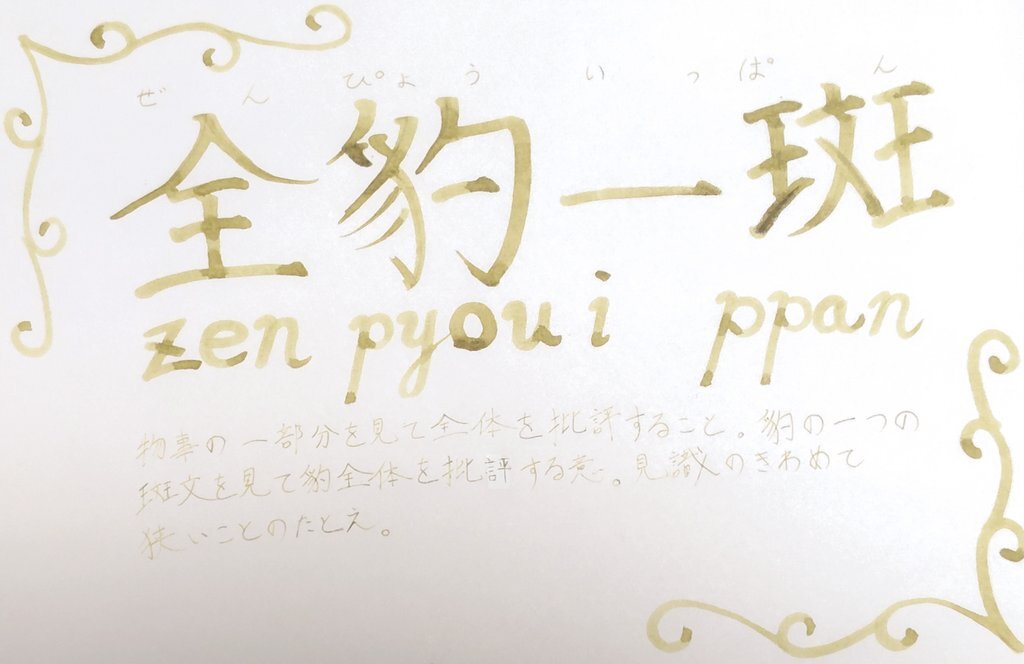 ぜん ぴょう いっぱん
全豹一斑
zen pyou i ppan
物事の一部分を見て全体を批評すること。豹の一つの
斑文を見て豹全体を批評する意。見識のきわめて
狭いことのたとえ。